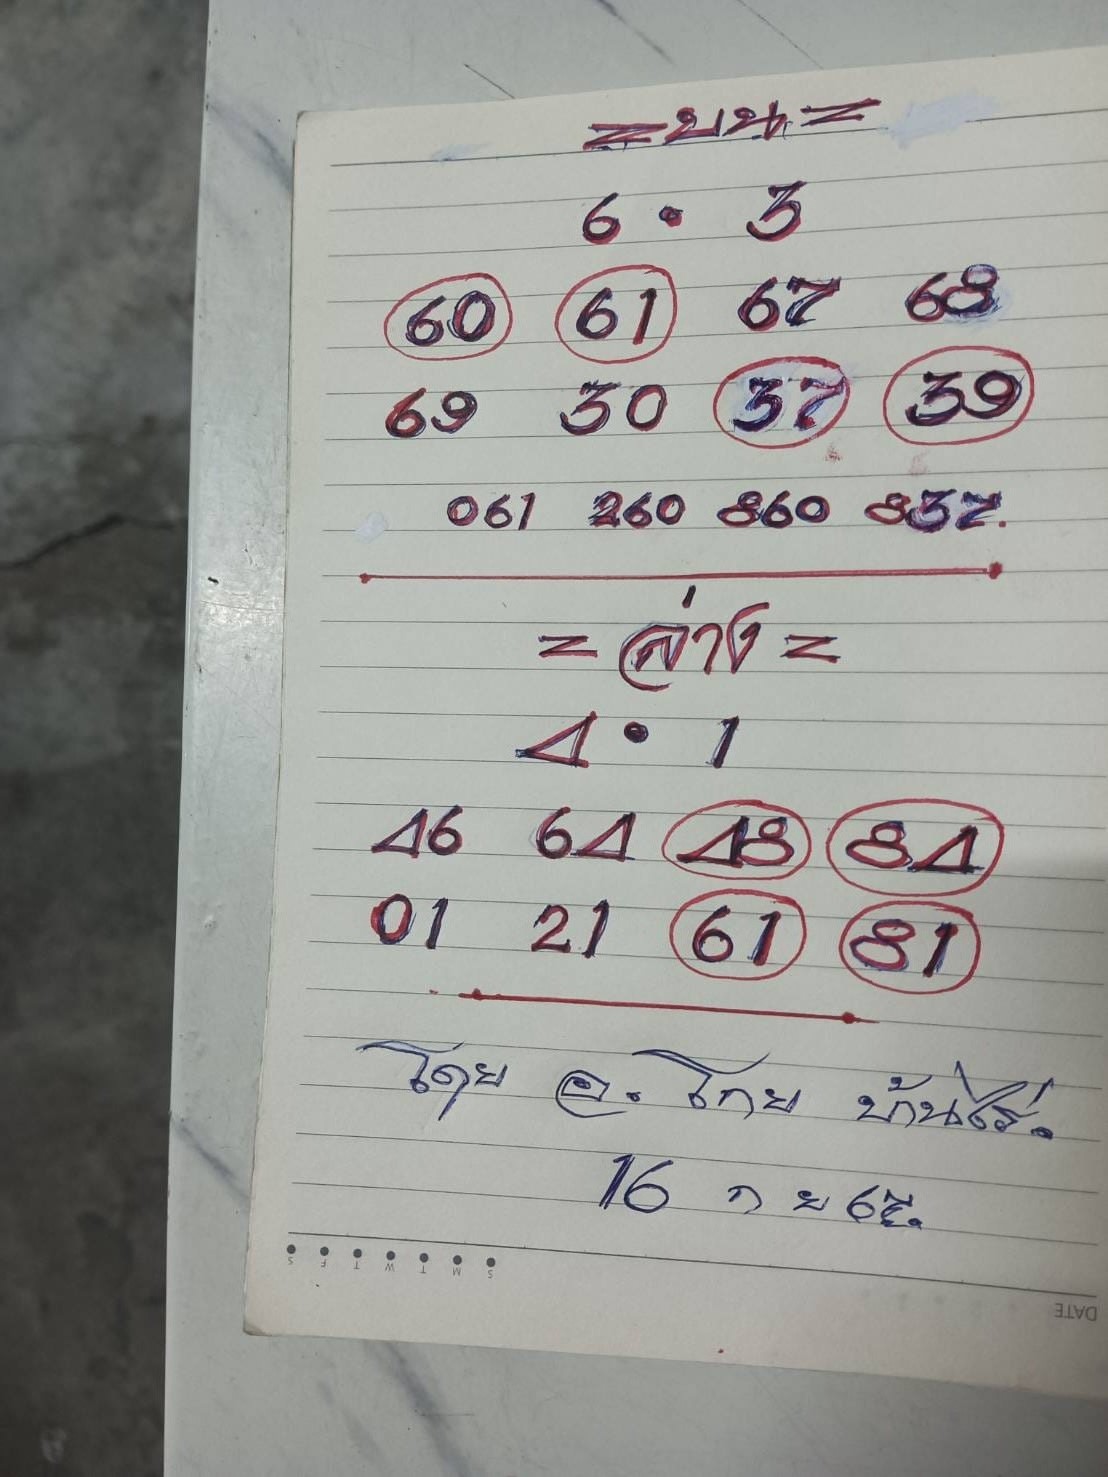 = บน =
6 • 3
60 61 67 68
69 30 37 39
061 260 860 837.
= ล่าง =
4 • 1
46 64 48 84
01 21 61 81
โดย อ. โกย บ้านไร่.
16 ก ย 65.
S F T W T M S
DATE